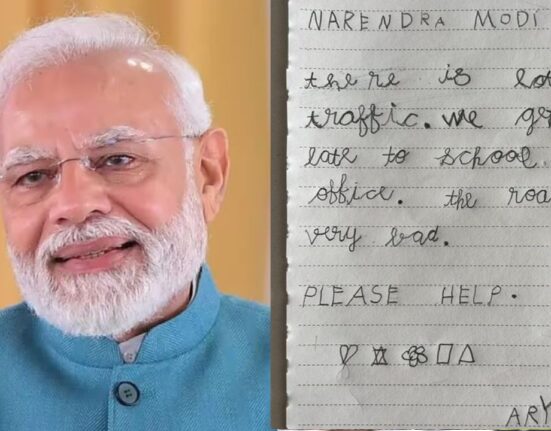 NARENDRA MODI
there is lot
traffic. we
late to school.
office. the
very bad.
PLEASE HELP.